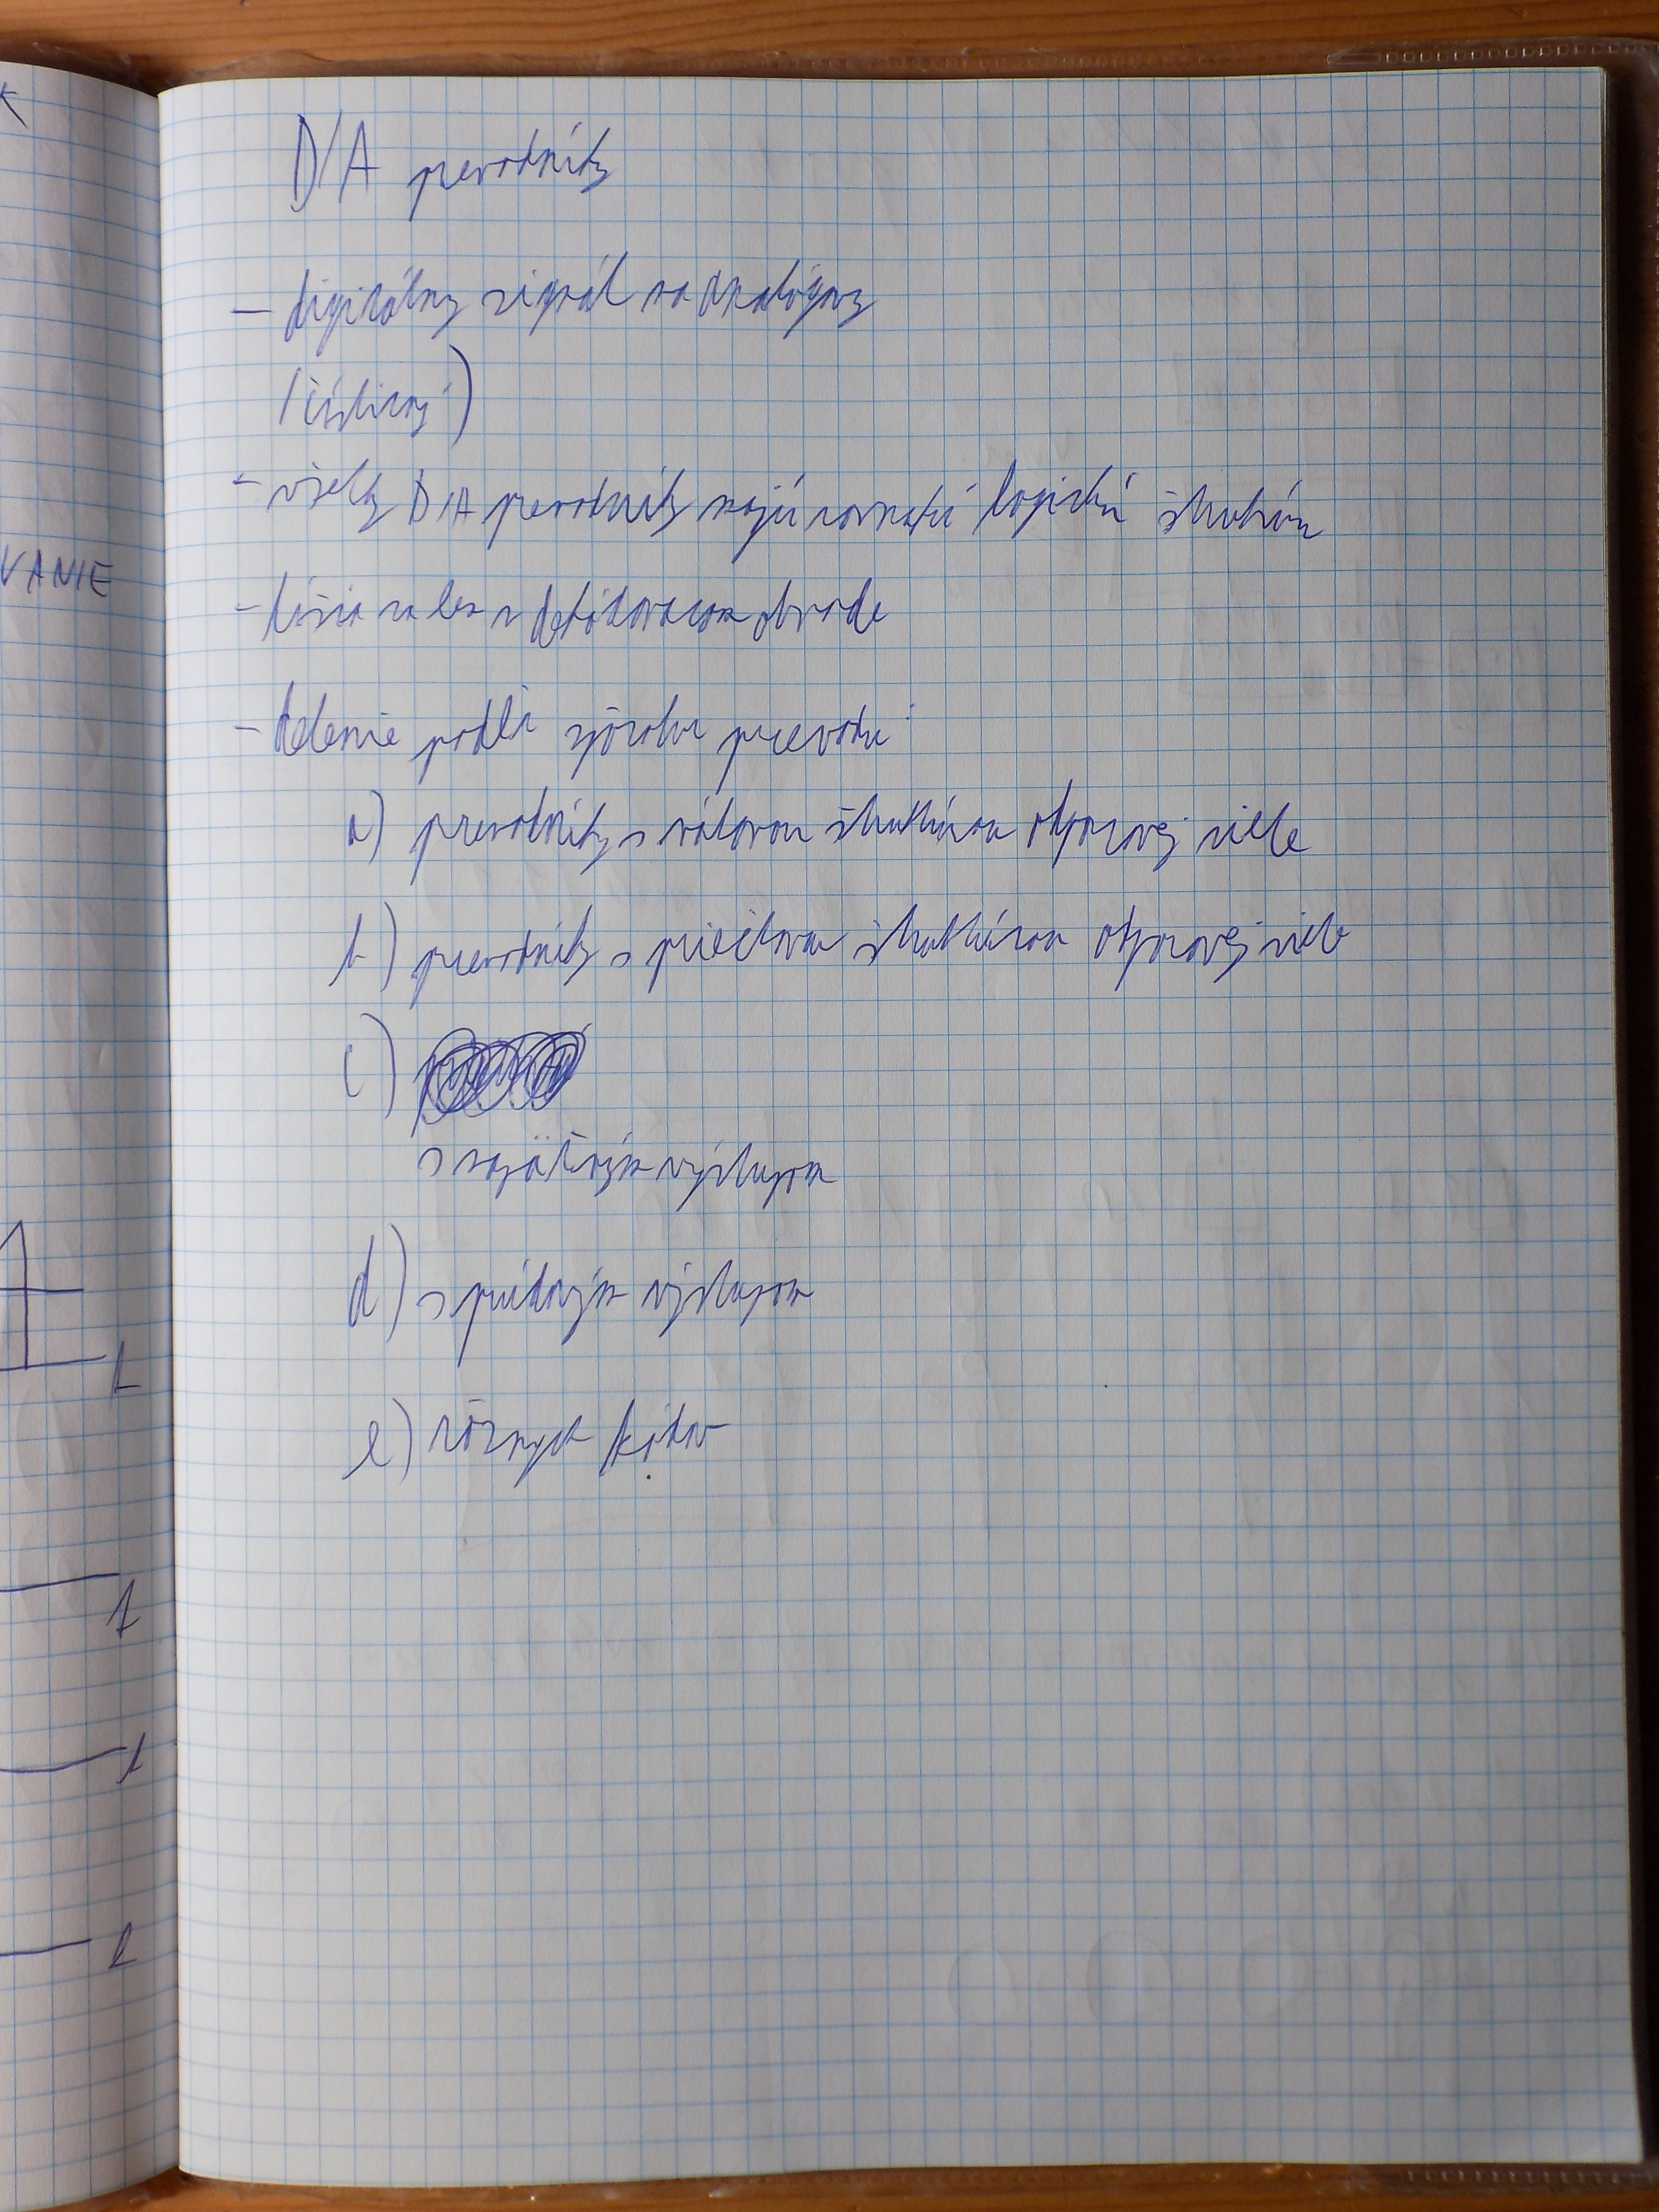 D/A prevodníky
- digitálny signál na analógový
(číslicový)
- všetky D/A prevodníky majú rovnakú logickú štruktúru
- líšia sa len v dekódovacom obvode
- delenie podľa spôsobu prevodu:
a) prevodníky s váhovou štruktúrou odporovej siete
b) prevodníky s priečkovou štruktúrou odporovej siete
c)
s napäťovým výstupom
d) s prúdovým výstupom
e) rôznych kódov
VANIE